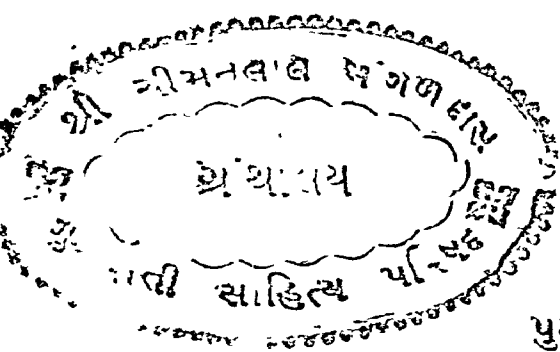 શ્રી ચીમનલાલ મંગળદાસ
ગ્રંથાલય
સાહિત્ય પરિષદ